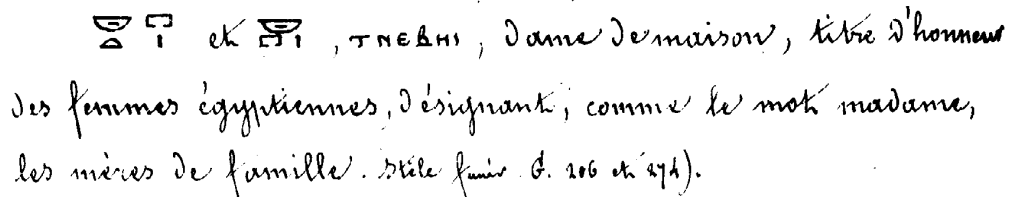 𓎟𓏏 𓉐𓏤 et 𓎟𓉐𓏤, ⲧⲛⲉⲃⲏⲓ, Dame de maison, titre d'honneur
des femmes égyptiennes, désignant, comme le mot madame,
les mères de famille. Stèle funér. G. 206 et 274).